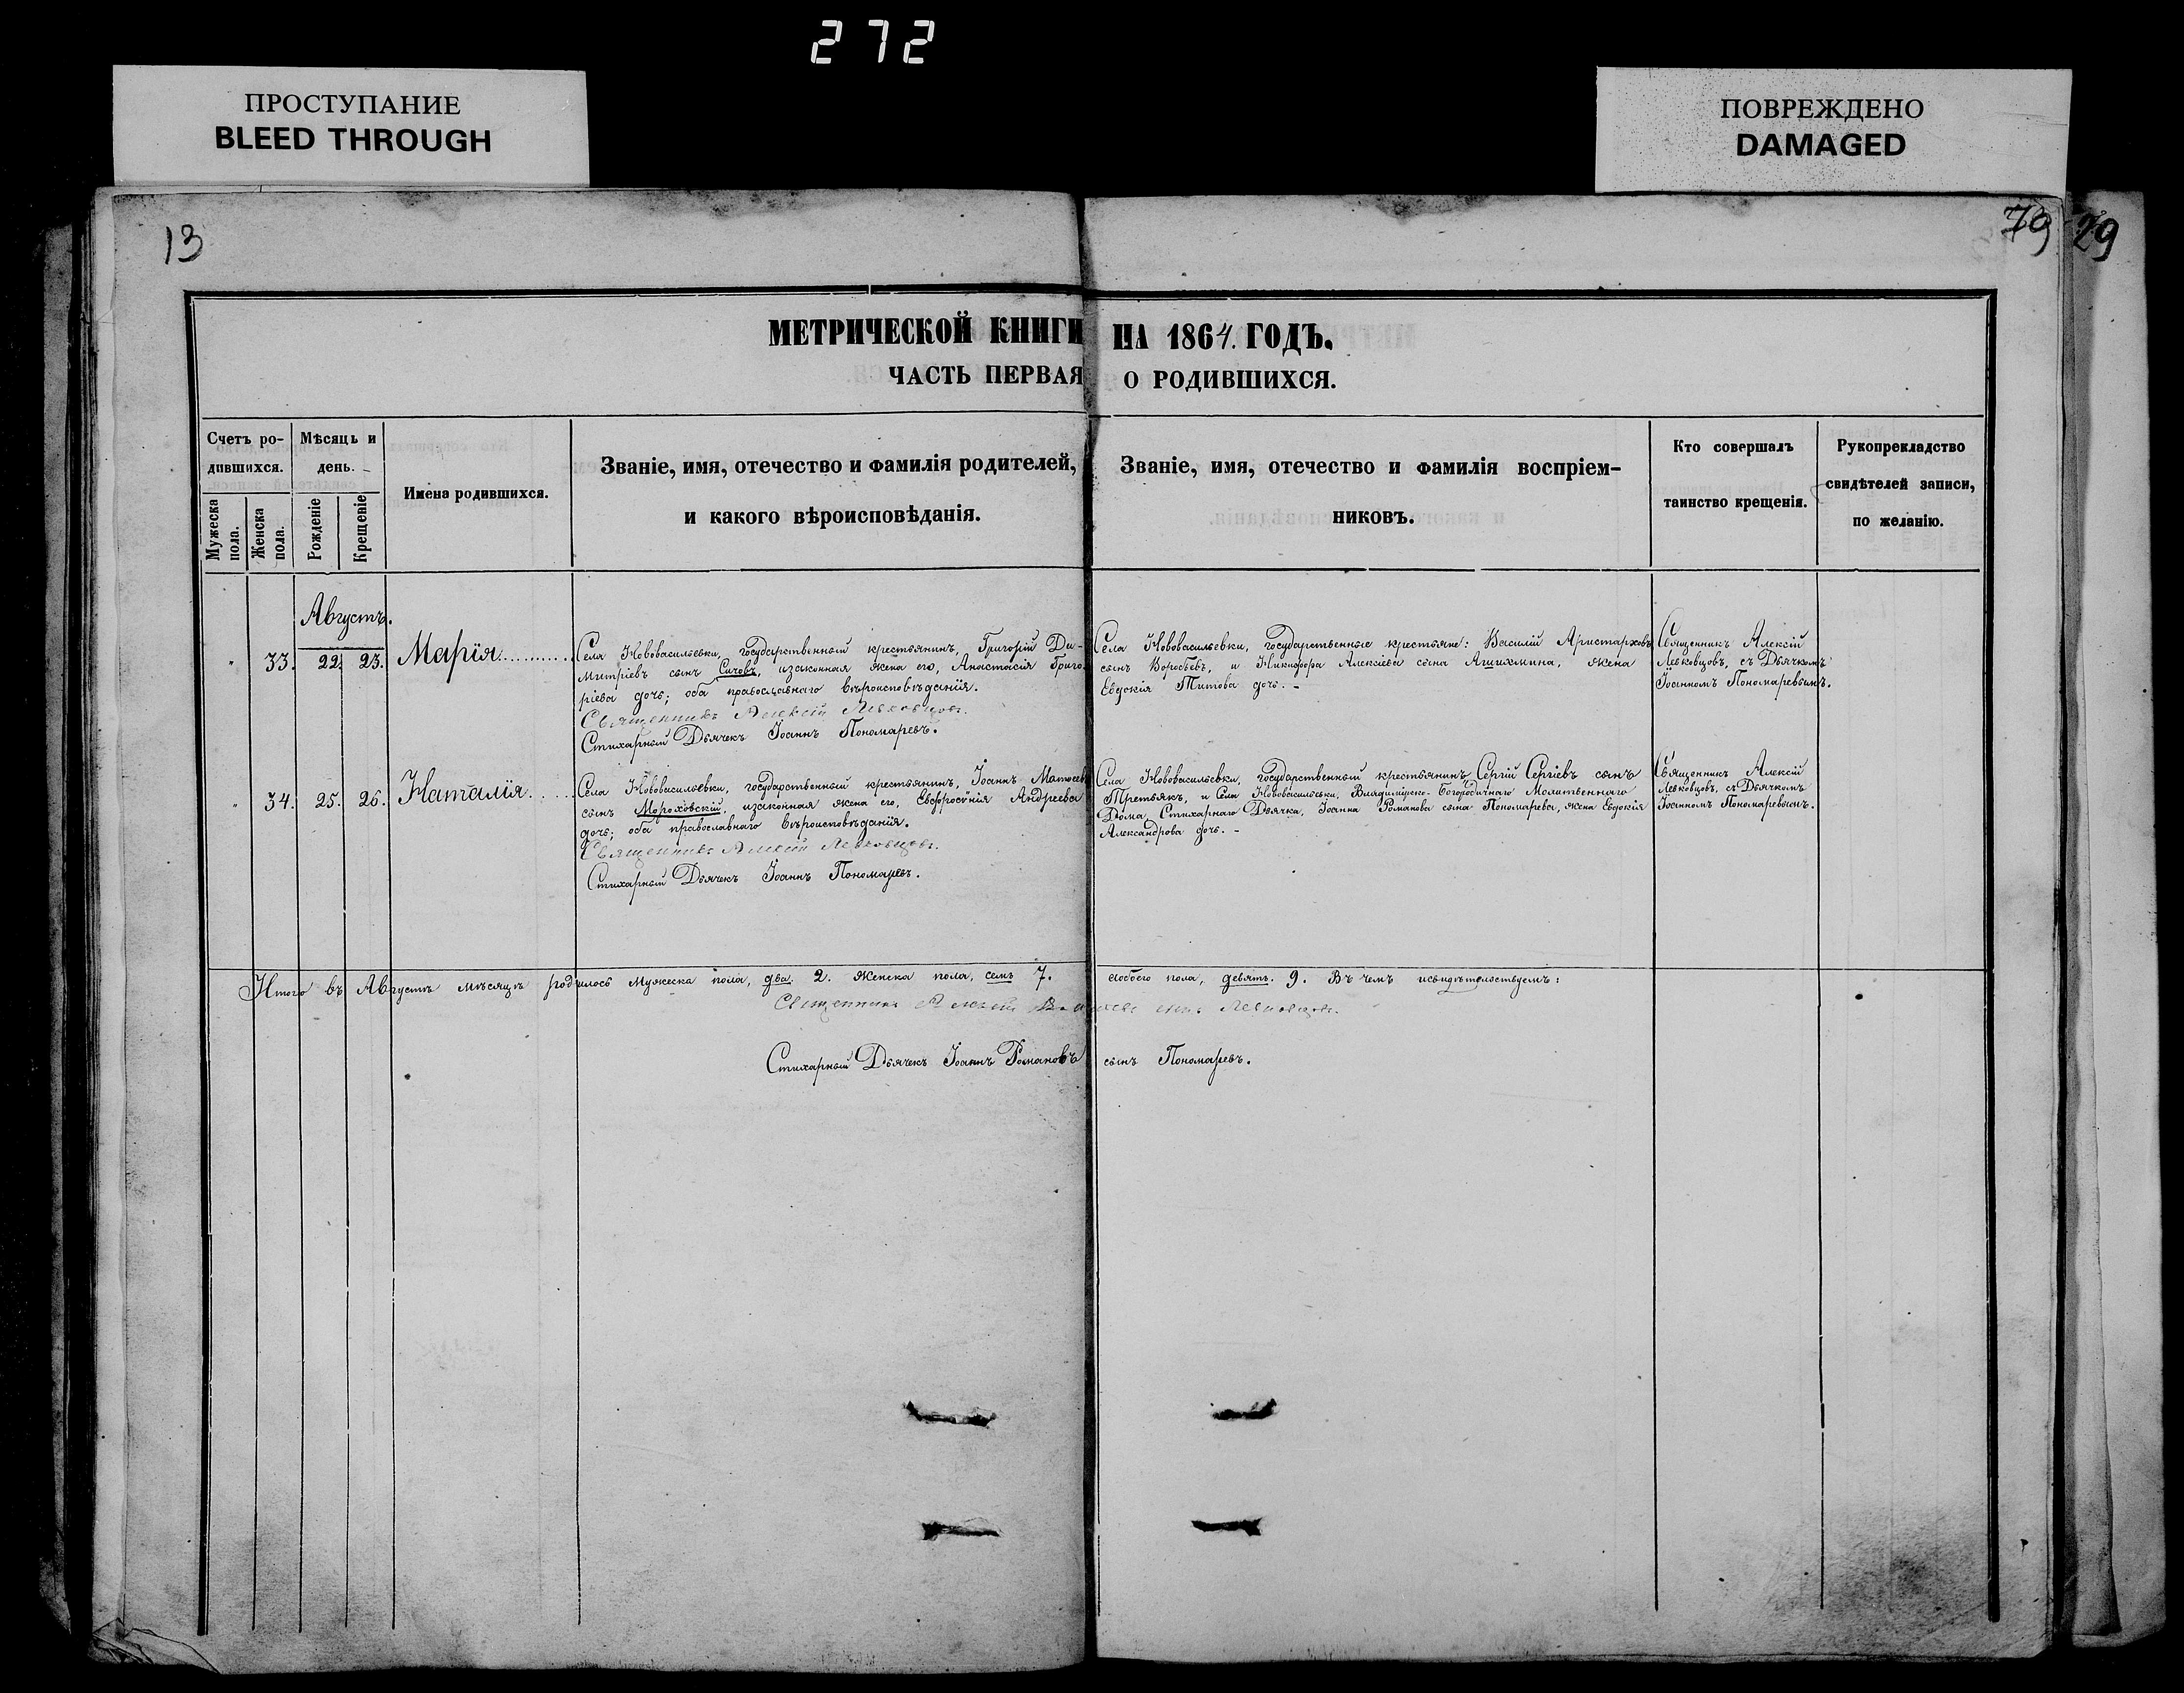 272
ПРОСТУПАНИЕ
BLEED THROUGH
ПОВРЕЖДЕНО
DAMAGED
13
79 29
МЕТРИЧЕСКОЙ КНИГИ НА 1864. ГОДЪ.
ЧАСТЬ ПЕРВАЯ О РОДИВШИХСЯ.
Счетъ ро-
дившихся.
Мужеска
пола.
Женска
пола.
Мѣсяць и
день.
Рожденіе
Крещеніе
Имена родившихся.
Званіе, имя, отечество и фамилія родителей,
и какого вѣроисповѣданія.
Званіе, имя, отечество и фамилія воспріем-
никовъ.
Кто совершалъ
таинство крещенія.
Рукоприкладство
свидѣтелей записи,
по желанію.
Августъ.
" 33. 22. 23. Марія
Села Нововасильевки, государственный крестьянинъ, Григорій Ди-
митріевъ сынъ Сычовъ, изаконная жена его, Анастасія Григо-
ріева дочь; оба православнаго вѣроисповѣданія.
Священникъ Алексій Левковцовъ.
Стихарный Дьячекъ Іоаннъ Пономаревъ.
Села Нововасильевки, государственные крестьяне: Василій Аристарховъ
сынъ Воробьевъ, и Никифора Алексіева сына Ашихмина, жена
Евдокія Титова дочь. -
Священникъ Алексій
Левковцовъ, съ Дьячкомъ
Іоанномъ Пономаревымъ.
" 34. 25. 26. Наталія
Села Нововасильевки, государственный крестьянинъ, Іоаннъ Матѳеевъ
сынъ Мороховскій, изаконная жена его, Евфросинія Андреева
дочь; оба православнаго вѣроисповѣданія.
Священникъ Алексій Левковцовъ.
Стихарный Дьячекъ Іоаннъ Пономаревъ.
Села Нововасильевки, государственный крестьянинъ Сергій Сергіевъ сынъ
Третьякъ, и Села Нововасильевки, Владимірско-Богородичнаго Молитвеннаго
Дома, Стихарнаго Дьячка, Іоанна Романова сына Пономарева, жена Евдокія
Александрова дочь. -
Священникъ Алексій
Левковцовъ, съ Дьячкомъ
Іоанномъ Пономаревымъ.
Итого въ Августѣ мѣсяцѣ родилось Мужеска пола, два. 2. Женска пола, семь 7. аобоего пола, девять. 9. Въ чемъ исвидѣтельствуемъ:
Священникъ Алексій сынъ Левковцовъ.
Стихарный Дьячекъ Іоаннъ Романовъ сынъ Пономаревъ.